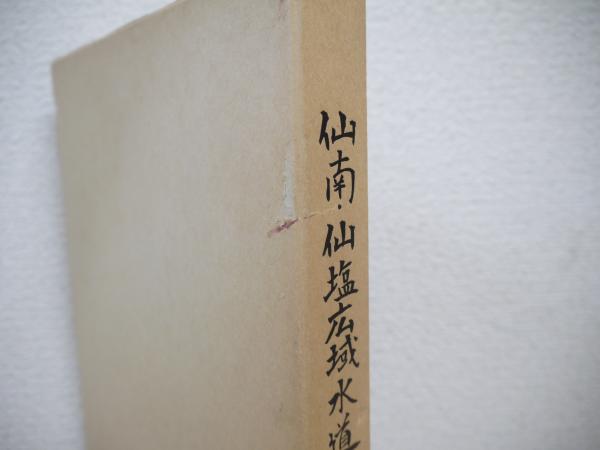 仙南・仙塩広域水道